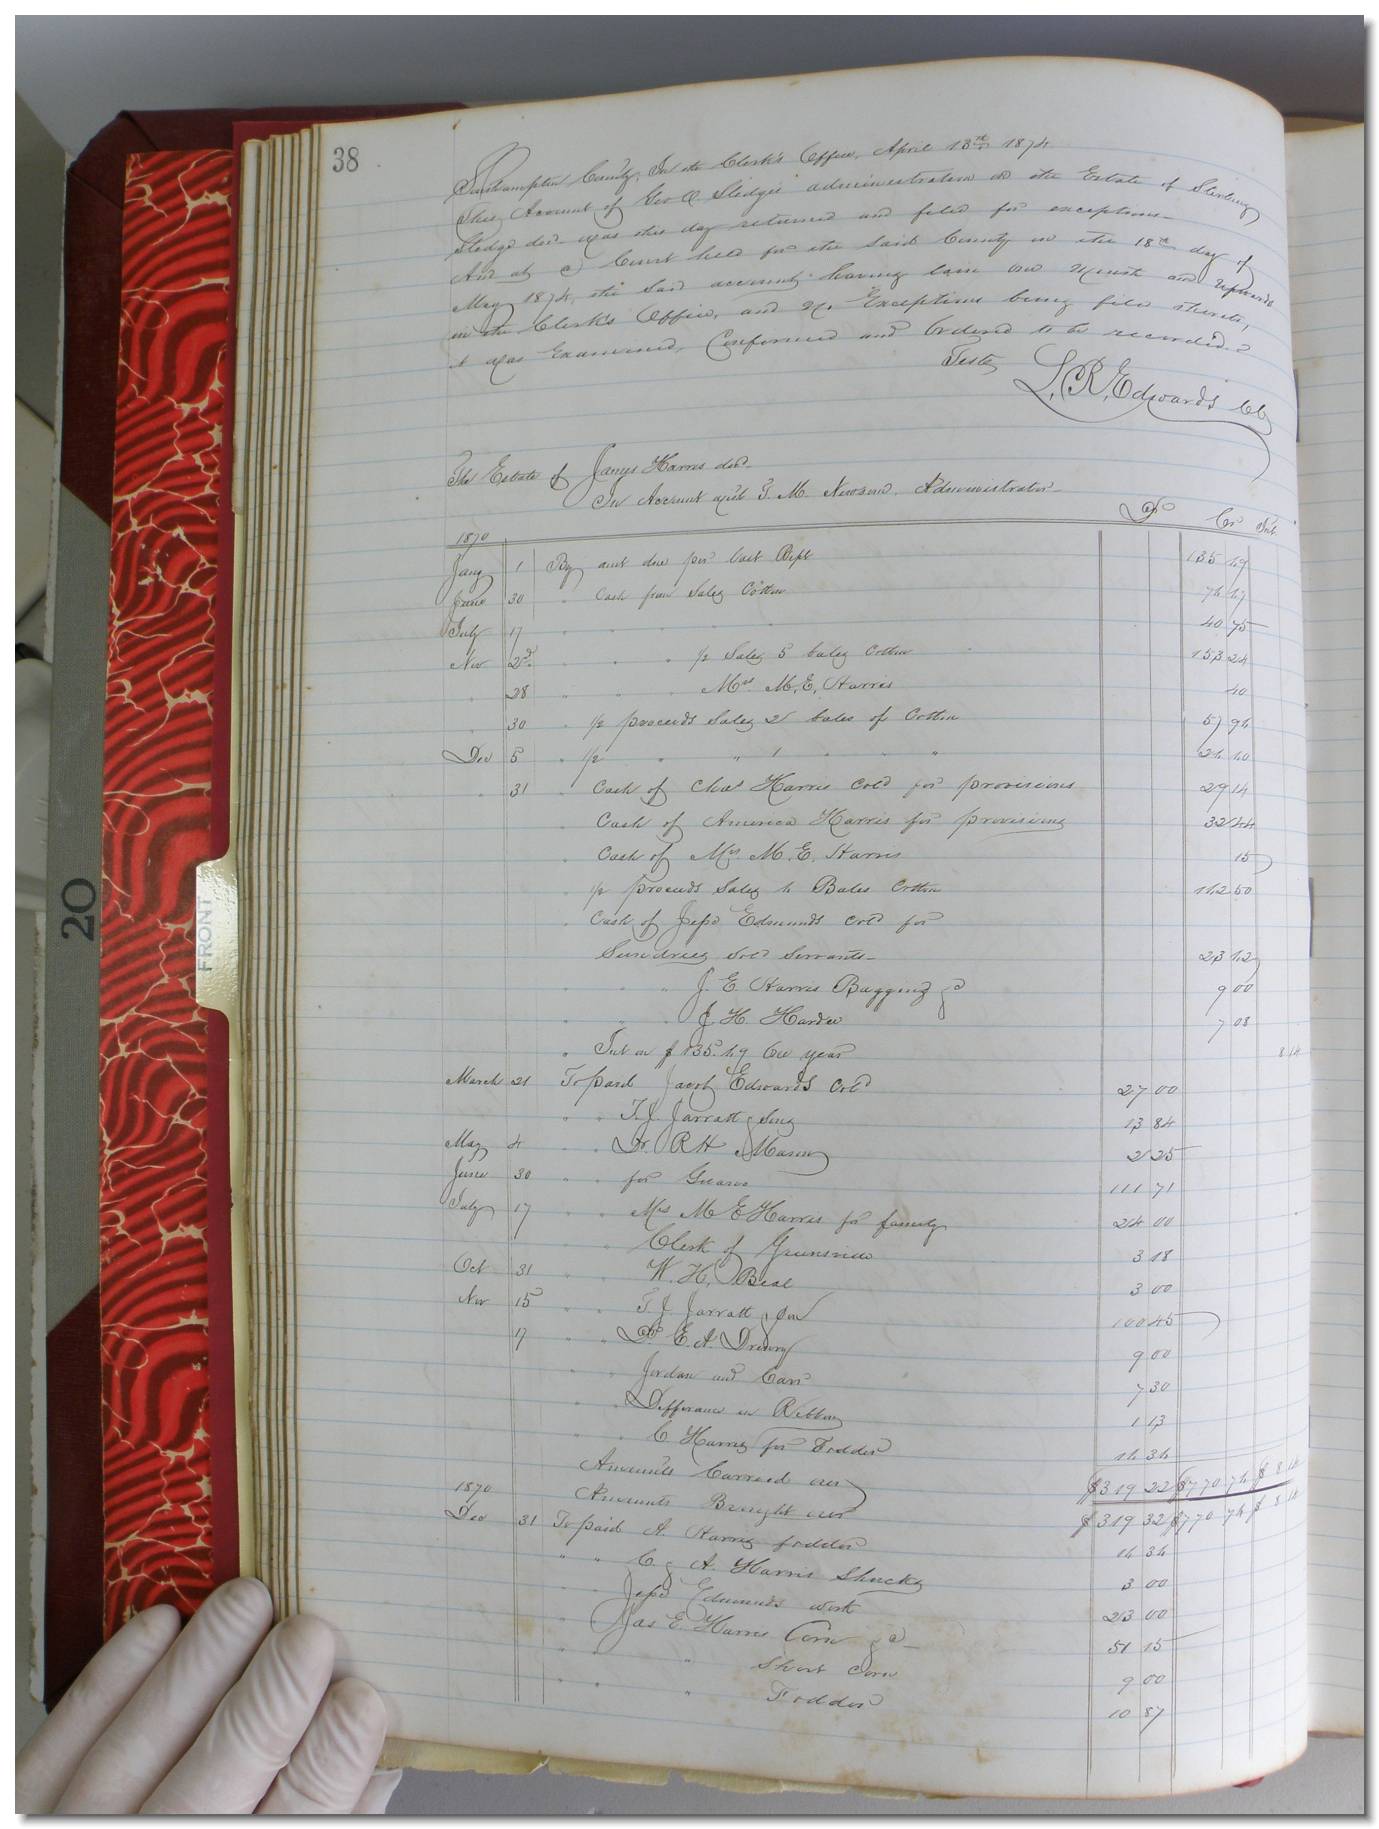 38
Southampton County, In the Clerk's Office, April 13th 1874
This Account of Geo Q. Sledge's administration on the Estate of Sterling
Sledge decd was this day returned and filed for exceptions
And at a Court held for the said County on the 18th day of
May 1874, the said account having lain one Month and upwards
in the Clerk's Office, and No Exceptions being filed thereto,
it was Examined, Confirmed and Ordered to be recorded.
Teste,
L. R. Edwards, Clk
The Estate of James Harris decd
In Account with T. M. Newsom. Administrator
Dr Cr Int
1870
Jany 1 By amt due per last Rept 135 49
June 30 " Cash from Sales Cotton 74 47
July 17 " " " " 40 75
Nov 2d " " " 1/2 Sales 5 bales Cotton 153 24
" 28 " " " Mrs M. E. Harris 40
" 30 " 1/2 proceeds Sales 2 bales of Cotton 57 94
Dec 5 " 1/2 " " 1 " " " 24 40
" 31 " Cash of Chas Harris Cold for provisions 29 14
" Cash of America Harris for provisions 32 44
" Cash of Mrs M. E. Harris 15
" 1/2 proceeds Sales 4 Bales Cotton 142 50
" Cash of Jesse Edmunds Cold for
Sundries sold Servants 23 42
" " " J. E. Harris Bagging &c 9 00
" " " J. H. Hardee 7 08
" Int on $135.49 One year 8 14
March 21 To paid Jacob Edwards Cold 27 00
" " T. J. Jarratt & Sons 13 84
May 4 " " Dr. R H Mason 2 25
June 30 " " for Guano 111 71
July 17 " " Mrs M E Harris for family 24 00
" Clerk of Greensville 3 18
Oct 31 " W. H. Beal 3 00
Nov 15 " " T. J. Jarratt & Son 100 45
17 " " Dr E. A. Drewry 9 00
" " Jordan and Carr 7 30
" " Differance in 1 13
" " C Harris for Fodder 14 34
Amounts Carried over $319 22 $770 74 $8 14
1870 Amounts Brought over $319 32 $770 74 $8 14
Dec 31 To paid A. Harris fodder 14 34
" " C. & A. Harris Shucks 3 00
" Jesse Edmunds work 23 00
" Jas E. Harris Corn &c 51 15
" " Short Corn 9 00
" " Fodder 10 87
FRONT
20